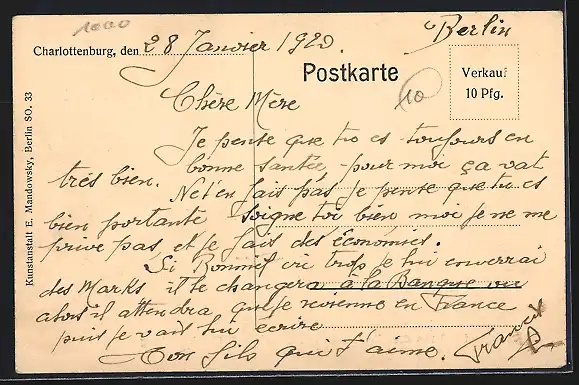 1000
Berlin
Charlottenburg, den 28 Janvier 1920.
Postkarte
Verkauf
10 Pfg.
10
Kunstanstalt E. Mandowsky, Berlin SO. 33
Chère Mère
Je pense que tu es toujours en
bonne santée, pour moi ça vat
très bien. Net'en fais pas je pense que tu es
bien portante soigne toi bien, moi je ne me
prive pas, et je fais des économies.
Si vois trop je lui enverrai
des Marks il te changera à la Banque ou
alors il attendra que je revienne en France
puis je vais lui écrire
Ton fils qui t'aime.